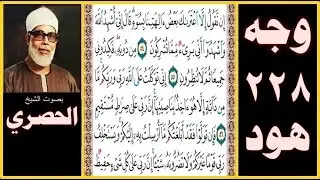 وجه
٢٢٨
هود
إِن نَّقُولُ إِلَّا ٱعْتَرَىٰكَ بَعْضُ ءَالِهَتِنَا بِسُوٓءٍ قَالَ إِنِّىٓ أُشْهِدُ ٱللَّهَ
وَٱشْهَدُوٓا۟ أَنِّى بَرِىٓءٌ مِّمَّا تُشْرِكُونَ ٥٤ مِن دُونِهِۦ فَكِيدُونِى
جَمِيعًا ثُمَّ لَا تُنظِرُونِ ٥٥ إِنِّى تَوَكَّلْتُ عَلَى ٱللَّهِ رَبِّى وَرَبِّكُم مَّا
مِن دَآبَّةٍ إِلَّا هُوَ ءَاخِذٌۢ بِنَاصِيَتِهَآ إِنَّ رَبِّى عَلَىٰ صِرَٰطٍ مُّسْتَقِيمٍ
٥٦ فَإِن تَوَلَّوْا۟ فَقَدْ أَبْلَغْتُكُم مَّآ أُرْسِلْتُ بِهِۦٓ إِلَيْكُمْ وَيَسْتَخْلِفُ
رَبِّى قَوْمًا غَيْرَكُمْ وَلَا تَضُرُّونَهُۥ شَيْـًٔا إِنَّ رَبِّى عَلَىٰ كُلِّ شَىْءٍ حَفِيظٌ
بصوت الشيخ
الحصري